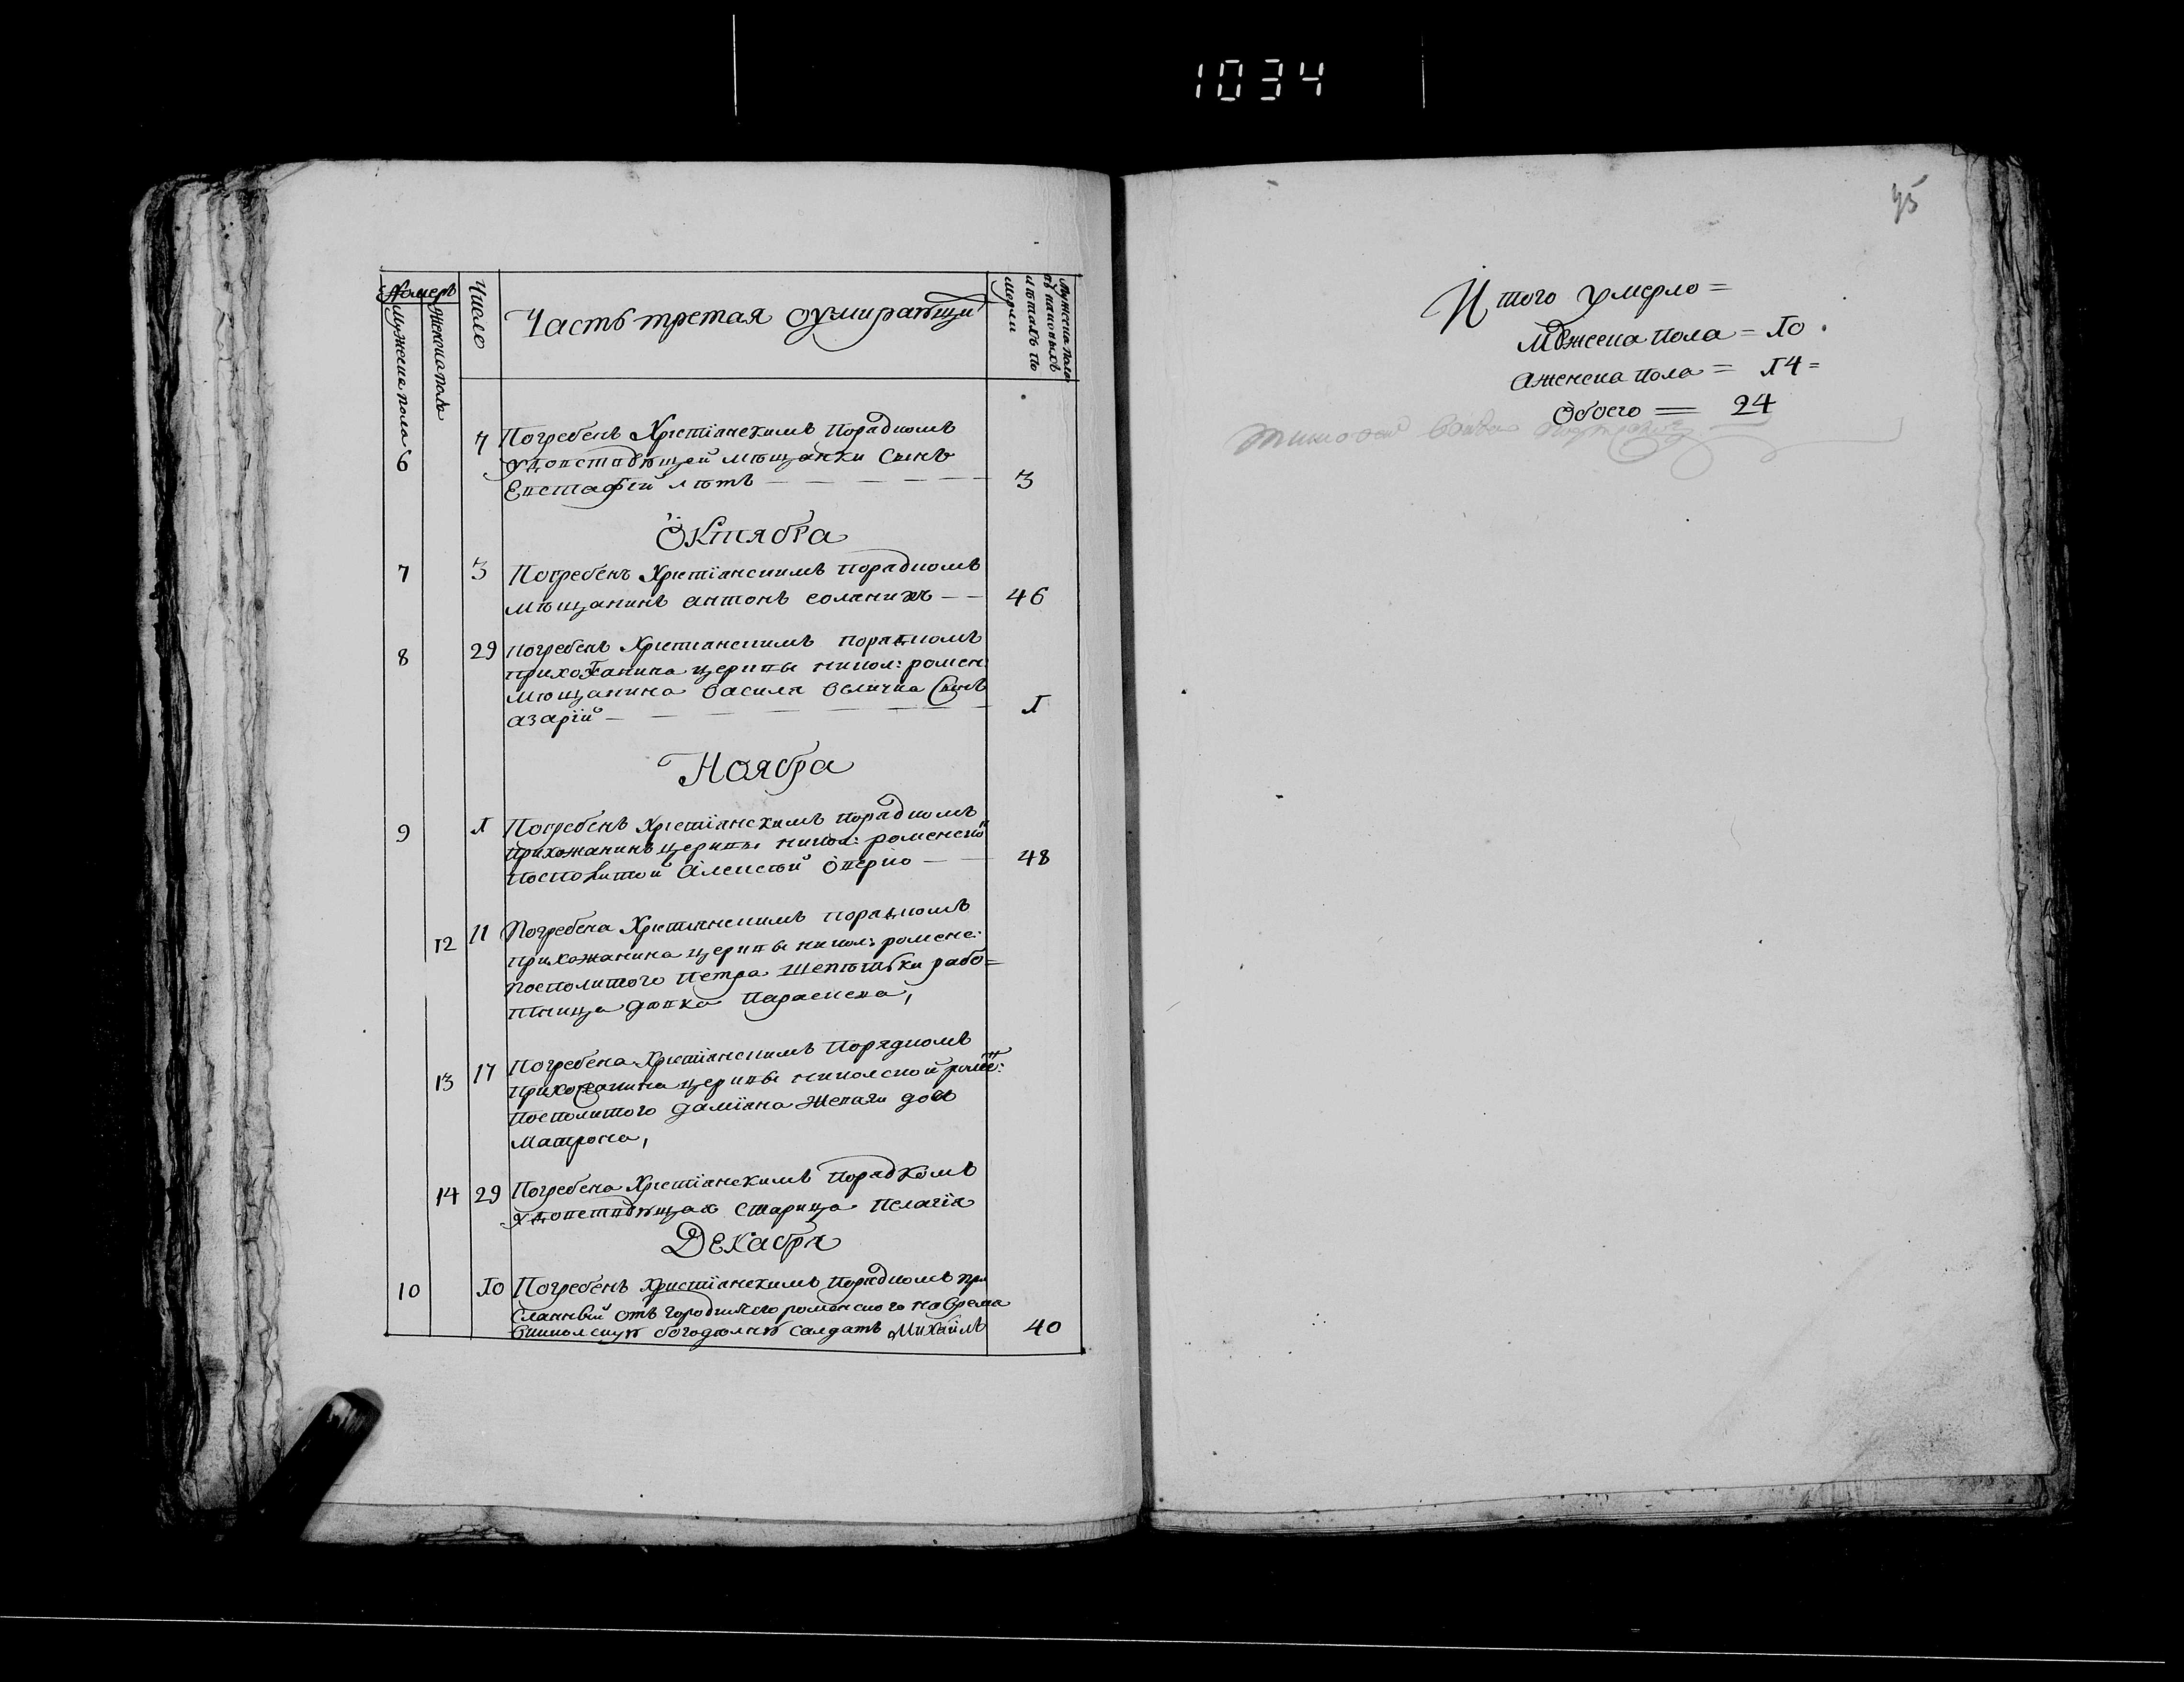 1034
45
Номеръ
Мужеска пола
Женска пола
Число
Часть третая оумирающи
Мужеска пола
въ каковыхъ
лѣтахъ по
мерли
6 7 Погребенъ Христїанскимъ порадкомъ
мѣщанки Сынъ
Евстафїй лѣтъ 3
Октября
7 3 Погребенъ Христїанскимъ порадкомъ
мѣщанинъ антонъ соланикъ 46
8 29 погребенъ Христианскимъ порадкомъ
прихожанина церквы никол: ромен:
мѣщанина василя величка Сынъ
азарїй 1
Ноября
9 1 Погребенъ Христїанскимъ порадкомъ
прихожанинъ церквы никол: роменской
посполитой Алексѣй 48
12 11 Погребена Христианскимъ порадкомъ
прихожанина церквы никол: роменс:
посполитого Петра рабо=
тница дѣвка Параскева,
13 17 Погребена Христїанскимъ Порядкомъ
прихожанина церквы николской ромен:
посполитого дамїана дочь
Матрона,
14 29 Погребена Христїанскимъ Порадкомъ
Старица Пелагїя
Декабря
10 10 Погребенъ христїанскимъ порадкомъ при
сланный отъ городничего роменского на время
вникольскую богодѣлню салдатъ Михаилъ 40
Итого умерло =
Мужеска пола = 10.
Аженска пола = 14 =
Обоего = 24